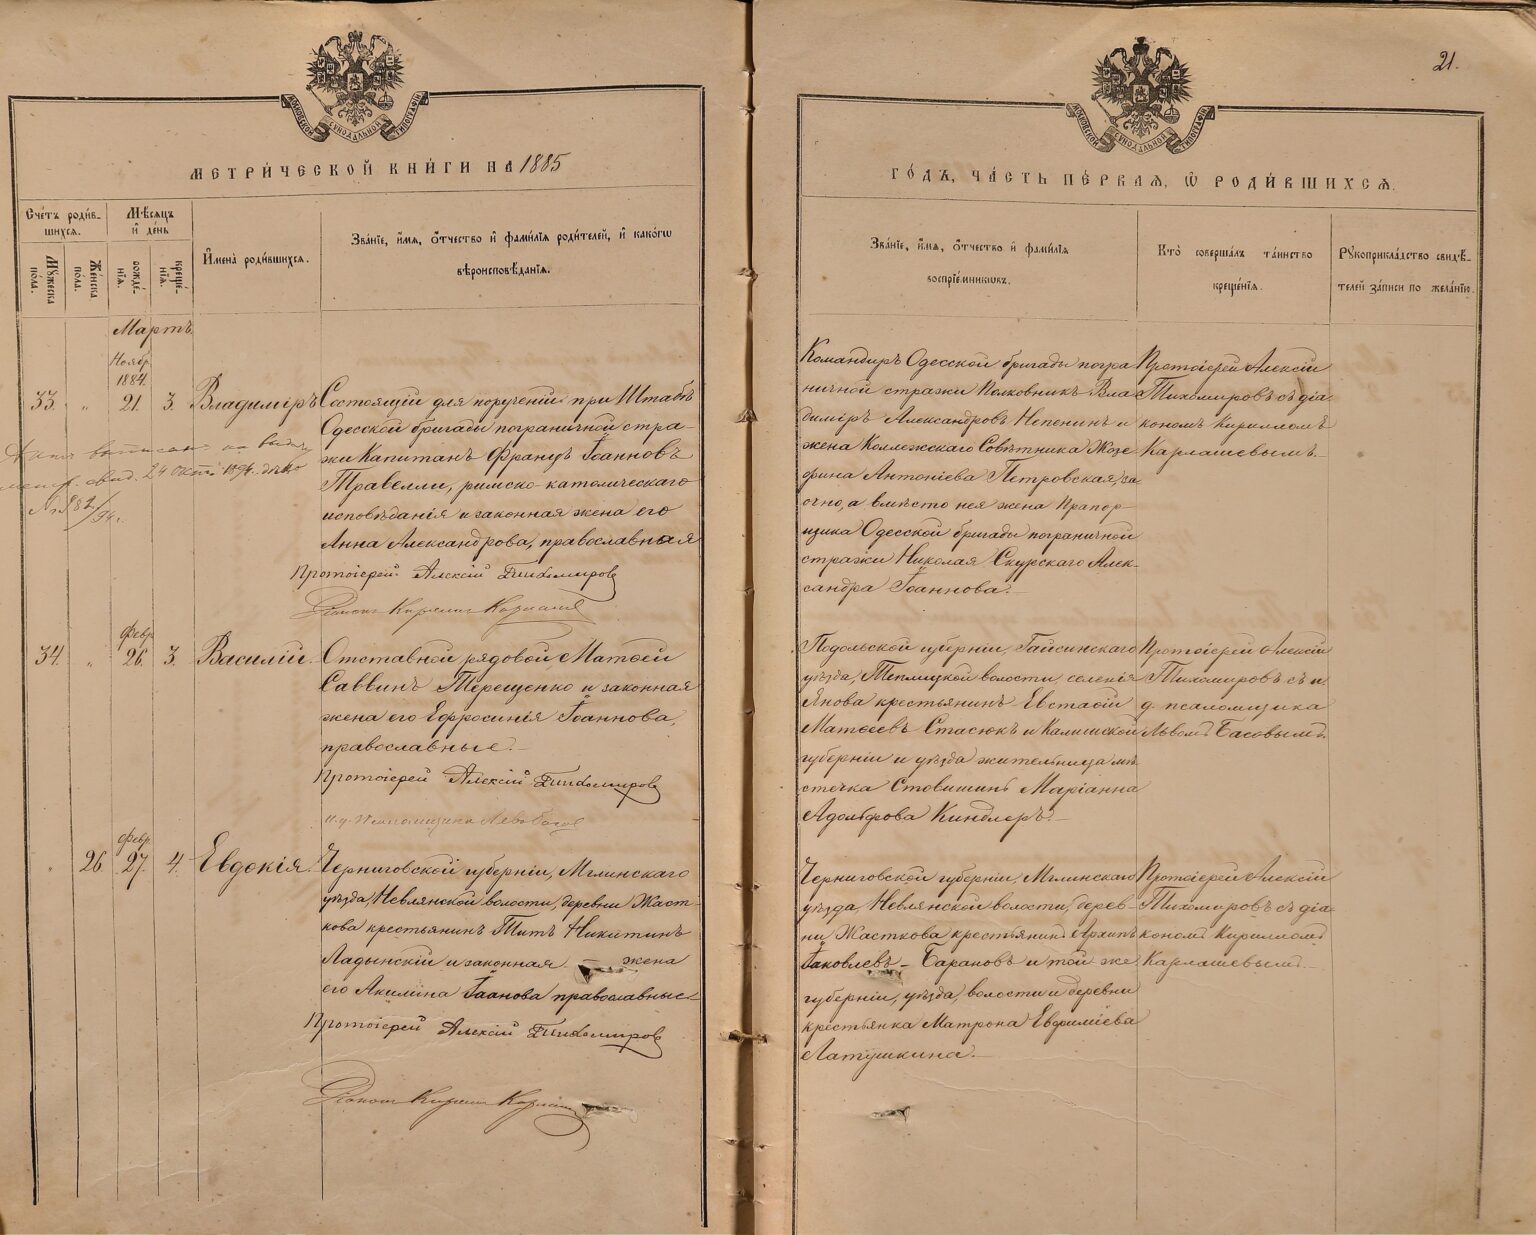 21.
МОСКОВСКОЙ СУНОДАЛЬНОЙ ТИПОГРАФІИ
МЕТРИ́ЧЕСКОЙ КНИ́ГИ НА 1885
Сче́тъ роди́в-
шихся.
Му́жеска по́ла.
Же́нска пола.
Мѣ́сяцъ
и҆ де́нь
рожде́-
нїѧ.
креще́-
нїѧ.
И҆мена̀ роди́вшихсѧ.
Зва́нїе, и҆́мѧ, ѻ҆́тчество и҆ фами́лїѧ роди́телей, и҆ како́гѡ
вѣроисповѣ́данїѧ.
Мартъ
Нояб.
1884.
33. " 21. 3. Владиміръ
Состоящій для порученій при Штабѣ
Одесской бригады пограничной стра-
жи Капитанъ Францъ Іоанновъ
Травелли, римско-католическаго
исповѣданія и законная жена его
Анна Александрова, православная
24 Окт. 1894.
Протоіерей Алексій Тихомировъ
Діаконъ Кириллъ
Февр.
34. " 26. 3. Василій.
Отставной рядовой Матѳей
Саввинъ Терещенко и законная
жена его Ефросинія Іоаннова,
православные.-
Протоіерей Алексій Тихомировъ
и. д. Псаломщика Левъ Басов
Февр.
" 26. 27. 4. Евдокія.
Черниговской губерніи, Мглинскаго
уѣзда, Невлянской волости, деревни Жаст-
кова крестьянинъ Титъ Никитинъ
Ладынскій и законная - жена
его Акилина Іоанова православные.-
Протоіерей Алексій Тихомиров
Діаконъ Кириллъ
МОСКОВСКОЙ СУНОДАЛЬНОЙ ТИПОГРАФІИ
ГО́ДЪ, ЧА́СТЬ ПЕ́РВАЯ, Ѡ҆ РОДИ́ВШИХСЯ.
Зва́нїе, и҆́мѧ, ѻ҆́тчество и҆ фами́лїѧ
воспрїе́мникѡвъ.
Кто̀ соверша́лъ та́инство
креще́нїѧ.
Рꙋкоприкла́дство свидѣ́-
телей за́писи по жела́нїю.
Командиръ Одесской бригады погра
ничной стражи Полковникъ Вла
диміръ Александровъ Непенинъ и
жена Коллежскаго Совѣтника Жозе
фина Антоніева Петровская, за
очно, а вмѣсто нея жена Прапор
щика Одесской бригады пограничной
стражи Николая Скурскаго Алек-
сандра Іоаннова.-
Протоіерей Алексій
Тихомировъ съ діа-
кономъ Кирилломъ
Карлашевымъ.-
Подольской губерніи, Гайсинскаго
уѣзда, Теплицкой волости, селенія
Янова крестьянинъ Евстафій
Матѳеевъ Стасюкъ и Калишской
губерніи и уѣзда жительница мѣ
стечка Ставишинъ Маріанна
Адольфова Киндлеръ.-
Протоіерей Алексій
Тихомировъ съ и.
д. псаломщика
Львомъ Басовымъ.
Черниговской губерніи, Мглинскаго
уѣзда, Невлянской волости, дерев-
ни Жасткова крестьянинъ Архипъ
Іаковлевъ - Барановъ и той же
губерніи, уѣзда, волости и деревни
крестьянка Матрона Евфиміева
Латушкина.-
Протоіерей Алексій
Тихомировъ съ діа-
кономъ Кирилломъ
Карлашевымъ.-